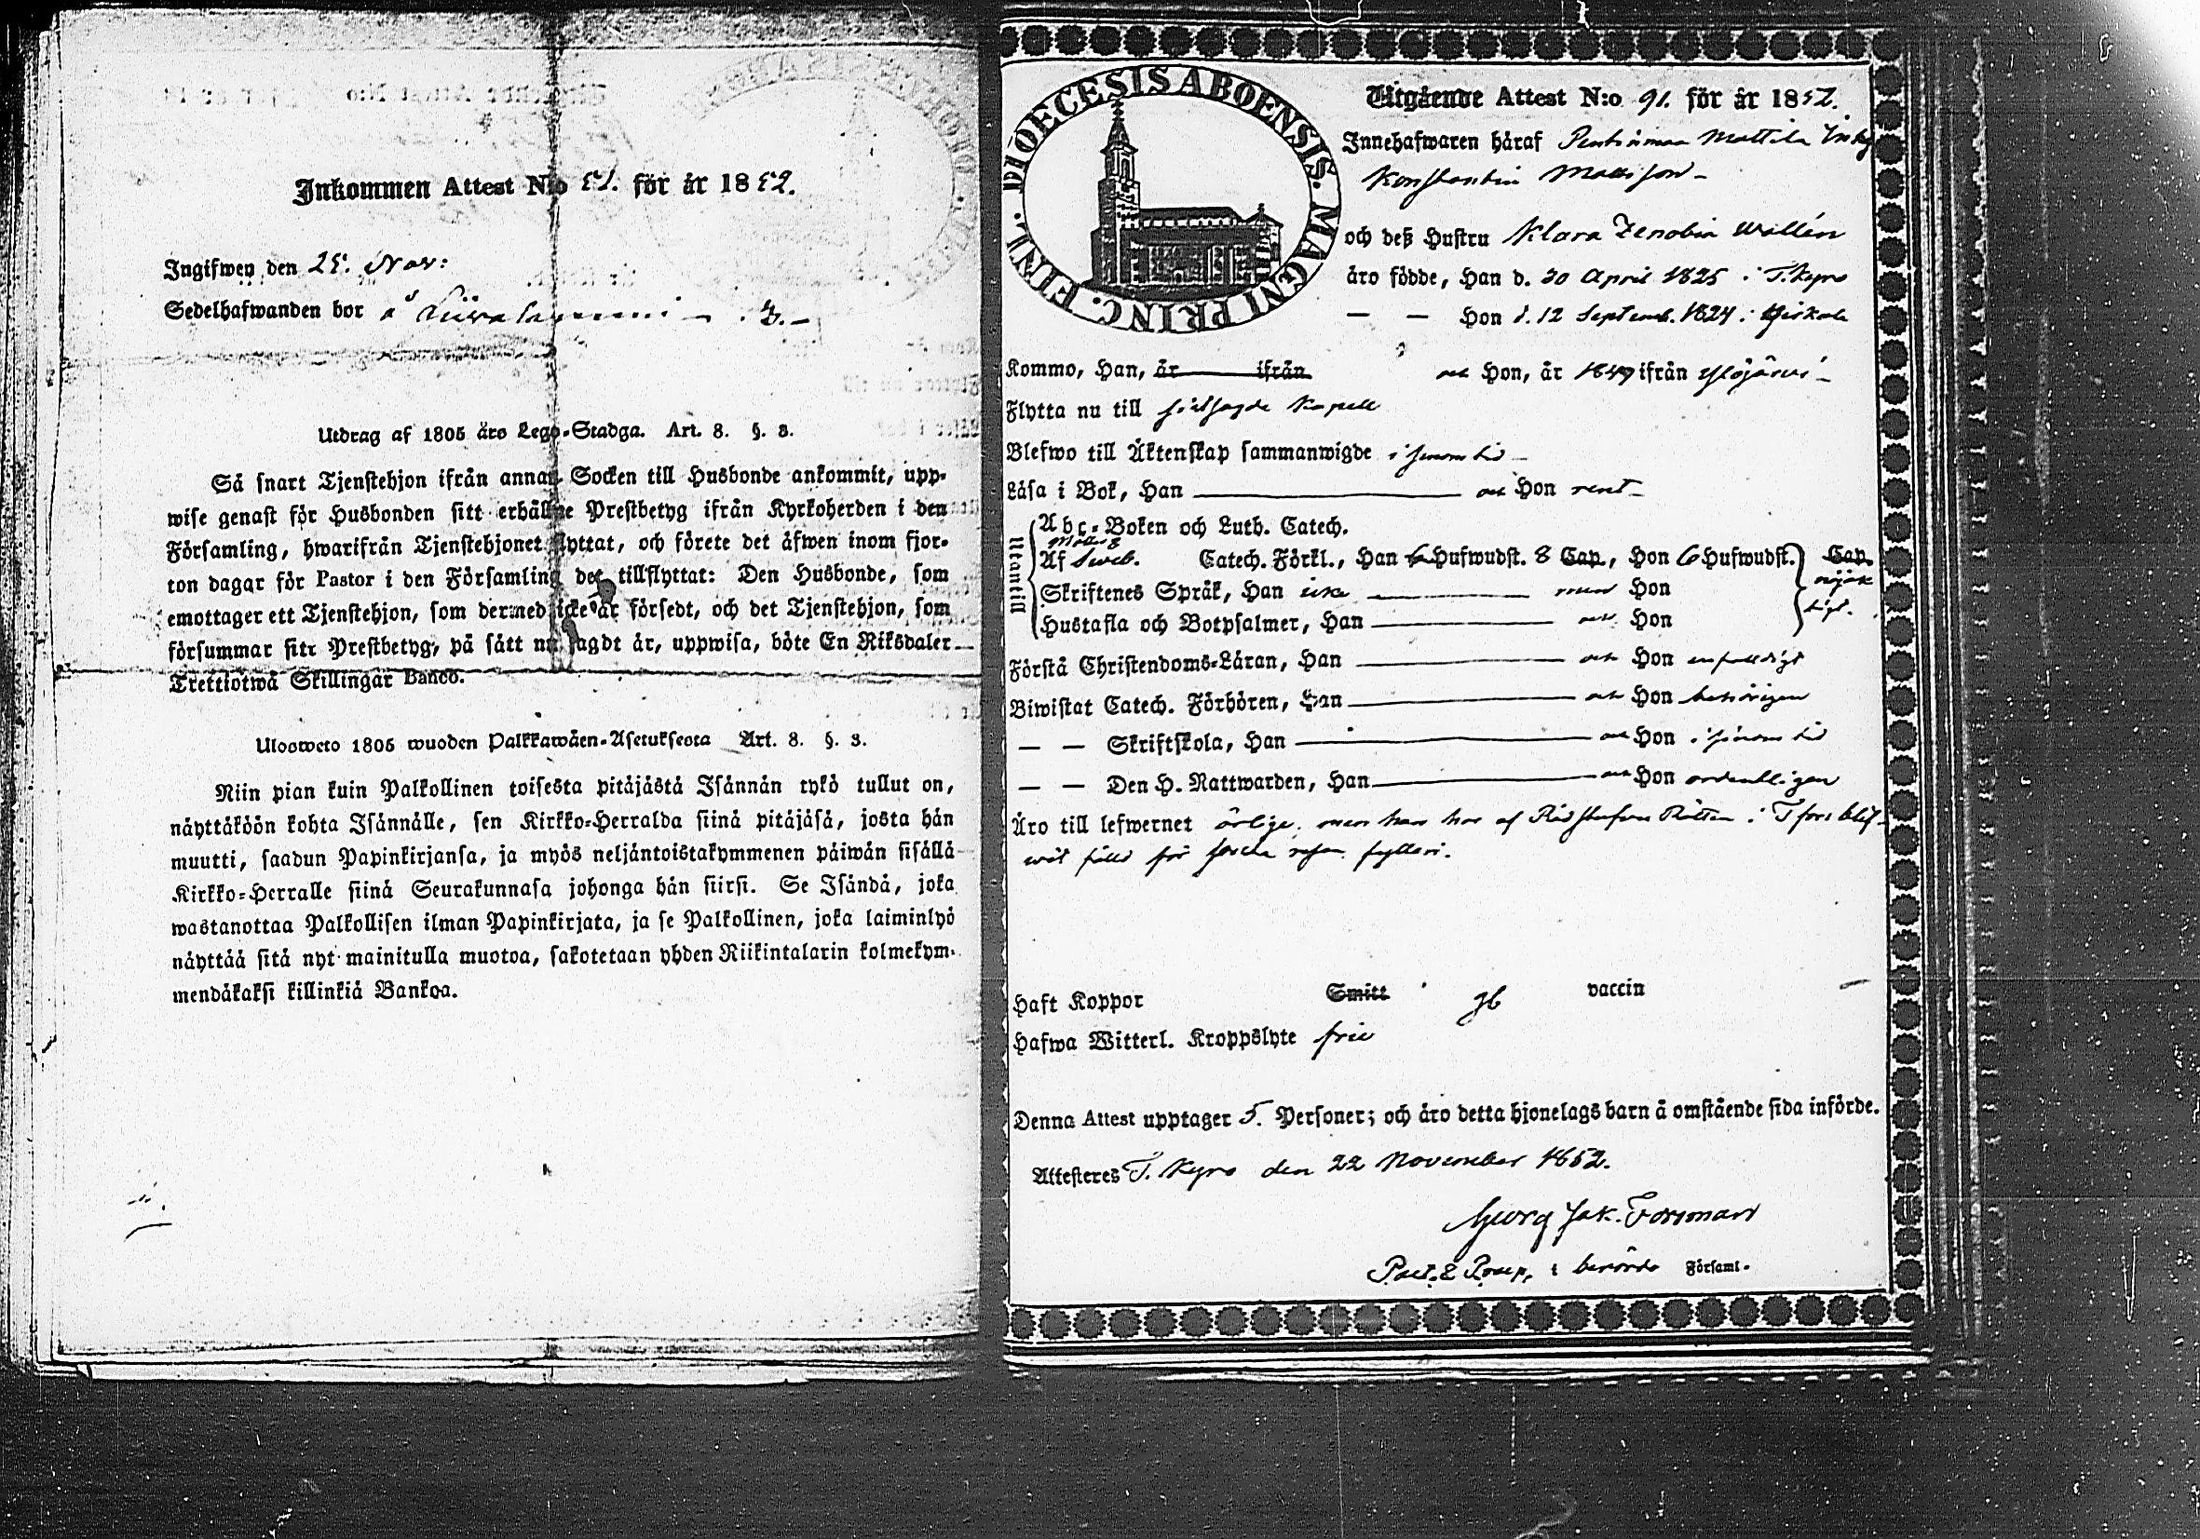 Inkommen Attest N:o 51. för år 1852.
Ingifwen den 25. Nov:
Sedelhafwanden bor å
Utdrag af 1805 års Lego-Stadga. Art. 8. §. 3.
Så snart Tjenstehjon ifrån annan Socken till Husbonde ankommit, upp-
wise genast för Husbonden sitt erhållne Prestbetyg ifrån Kyrkoherden i den
Församling, hwarifrån Tjenstehjonet flyttat, och förete det äfwen inom fjor-
ton dagar för Pastor i den Församling det tillflyttat: Den Husbonde, som
emottager ett Tjenstehjon, som dermed icke är försedt, och det Tjenstehjon, som
försummar sitt Prestbetyg, på sätt nu sagdt är, uppwisa, böte En Riksdaler
Trettiotwå Skillingar Banco.
Ulosweto 1805 wuoden Palkkawäen-Asetuksesta Art. 8. §. 3.
Niin pian kuin Palkollinen toisesta pitäjästä Isännän tykö tullut on,
näyttäköön kohta Isännälle, sen Kirkko-Herralda siinä pitäjäsä, josta hän
muutti, saadun Papinkirjansa, ja myös neljäntoistakymmenen päiwän sisällä
Kirkko-Herralle siinä Seurakunnasa johonga hän siirsi. Se Isändä, joka
wastanottaa Palkollisen ilman Papinkirjata, ja se Palkollinen, joka laiminlyö
näyttää sitä nyt mainitulla muotoa, sakotetaan yhden Riikintalarin kolmekym-
mendäkaksi killinkiä Bankoa.
DIOECESIS ABOENSIS. MAGNI PRINC. FINL.
Utgående Attest N:o 91. för år 1852.
Innehafwaren häraf Mattila
Konstantin Mattsson
och deß Hustru Klara Zenobia Willén
äro födde, Han d. 30 April 1825 i T. Kyro
— — Hon d. 12 Septemb. 1824 i
Kommo, Han, år ifrån och Hon, år 1849 ifrån Ylöjärvi
Flytta nu till Kapell
Blefwo till Äktenskap sammanwigde i sinom tid
Läsa i Bok, Han och Hon rent
Utantill
Abc-Boken och Luth. Catech.
Af Sweb. Catech. Förkl., Han 6 Hufwudst. 8 Cap., Hon 6 Hufwudst. Cap.
Skriftenes Språk, Han icke men Hon
Hustafla och Botpsalmer, Han och Hon
Förstå Christendoms-Läran, Han och Hon enfaldigt
Biwistat Catech. Förhören, Han och Hon behörigen
— — Skriftskola, Han och Hon i sinom tid
— — Den H. Nattwarden, Han och Hon ordentligen
Äro till lefwernet ärlige, men han har af Rådstufvu Rätten i T:fors blif-
vit fälld för första resan fylleri.
Haft Koppor Smitt vaccin
Hafwa Witterl. Kroppslyte frie
Denna Attest upptager 5. Personer; och äro detta hjonelags barn å omstående sida införde.
Attesteres T. Kyro den 22 November 1852.
Georg Jak. Forsman
Past. & Præp. i berörde Församl.